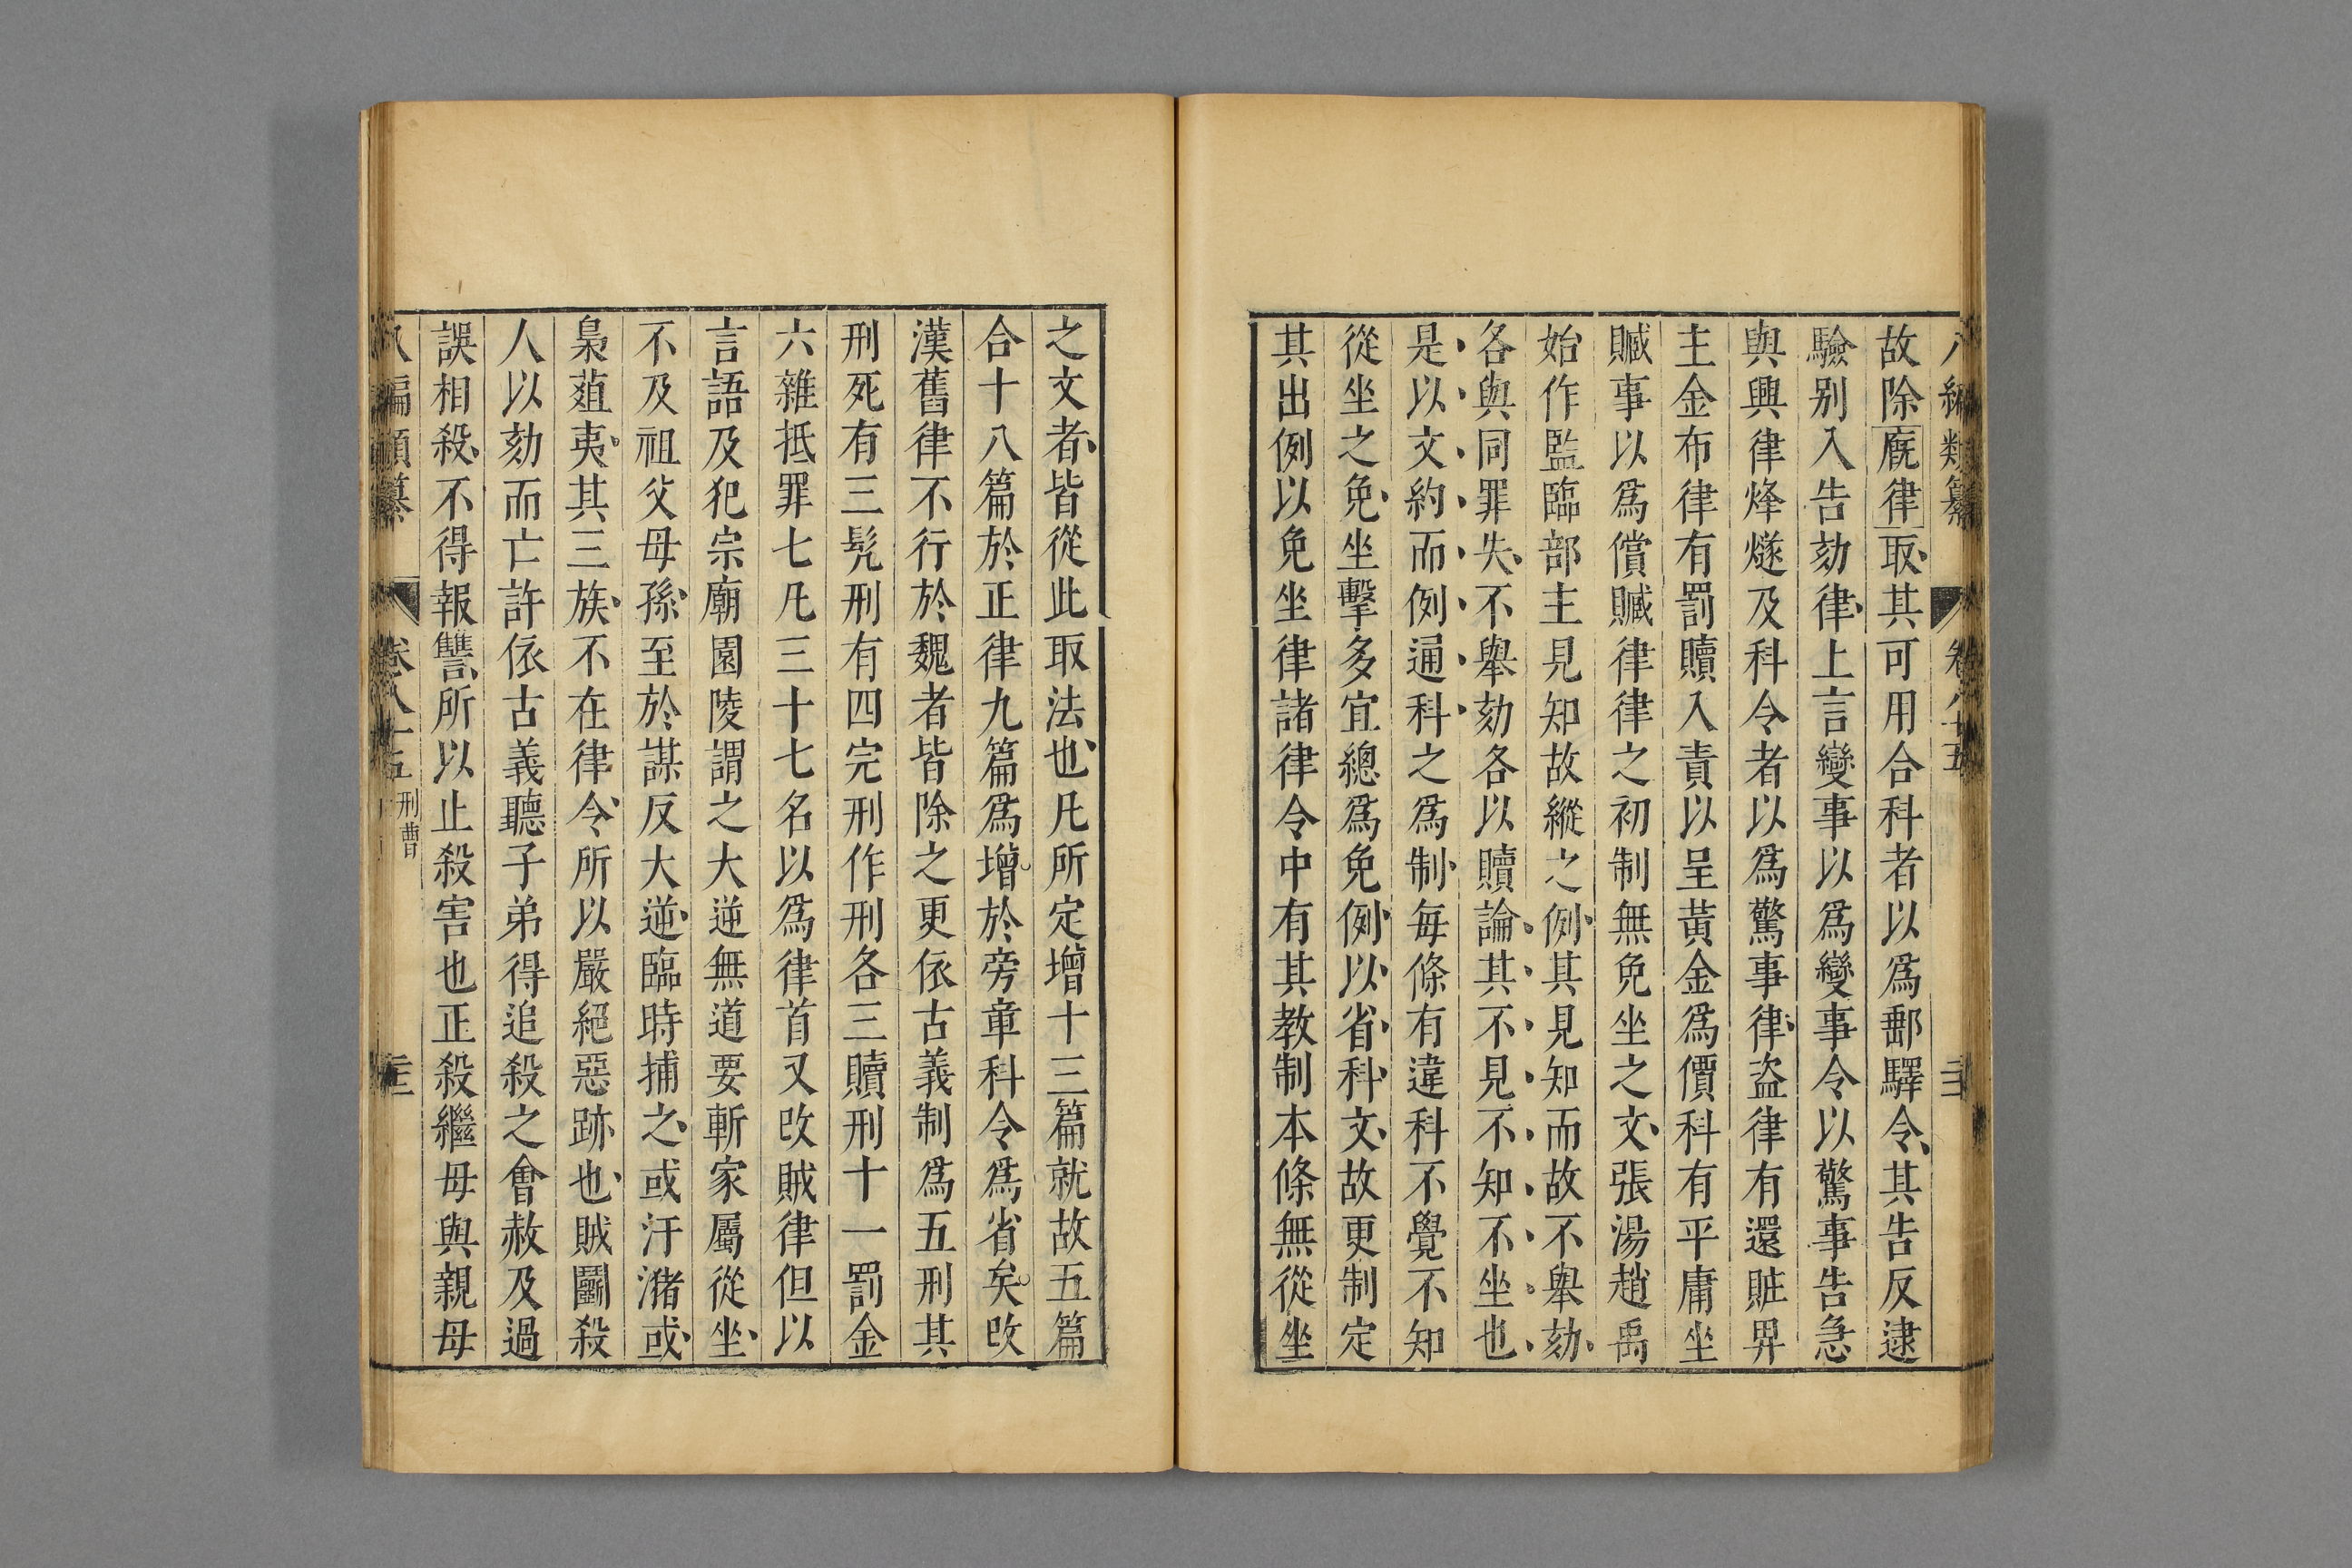 八編類纂 卷八十五
故除廐律取其可用合科者以爲郵驛令其告反逮
驗別入告劾律上言變事以爲變事令以驚事告急
與興律烽燧及科令者以爲驚事律盜律有還贓畀
主金布律有罰贖入責以呈黃金爲價科有平庸坐
贓事以爲償贓律律之初制無免坐之文張湯趙禹
始作監臨部主見知故縱之例其見知而故不舉劾
各與同罪失不舉劾各以贖論其不見不知不坐也
是以文約而例通科之爲制每條有違科不覺不知
從坐之免坐擊多宜總爲免例以省科文故更制定
其出例以免坐律諸律令中有其教制本條無從坐
之文者皆從此取法也凡所定增十三篇就故五篇
合十八篇於正律九篇爲增於旁章科令爲省矣改
漢舊律不行於魏者皆除之更依古義制爲五刑其
刑死有三髡刑有四完刑作刑各三贖刑十一罰金
六雜抵罪七凡三十七名以爲律首又改賊律但以
言語及犯宗廟園陵謂之大逆無道要斬家屬從坐
不及祖父母孫至於謀反大逆臨時捕之或汙瀦或
梟菹夷其三族不在律令所以嚴絕惡跡也賊鬭殺
人以劾而亡許依古義聽子弟得追殺之會赦及過
誤相殺不得報讐所以止殺害也正殺繼母與親母
八編類纂 卷八十五 刑曹